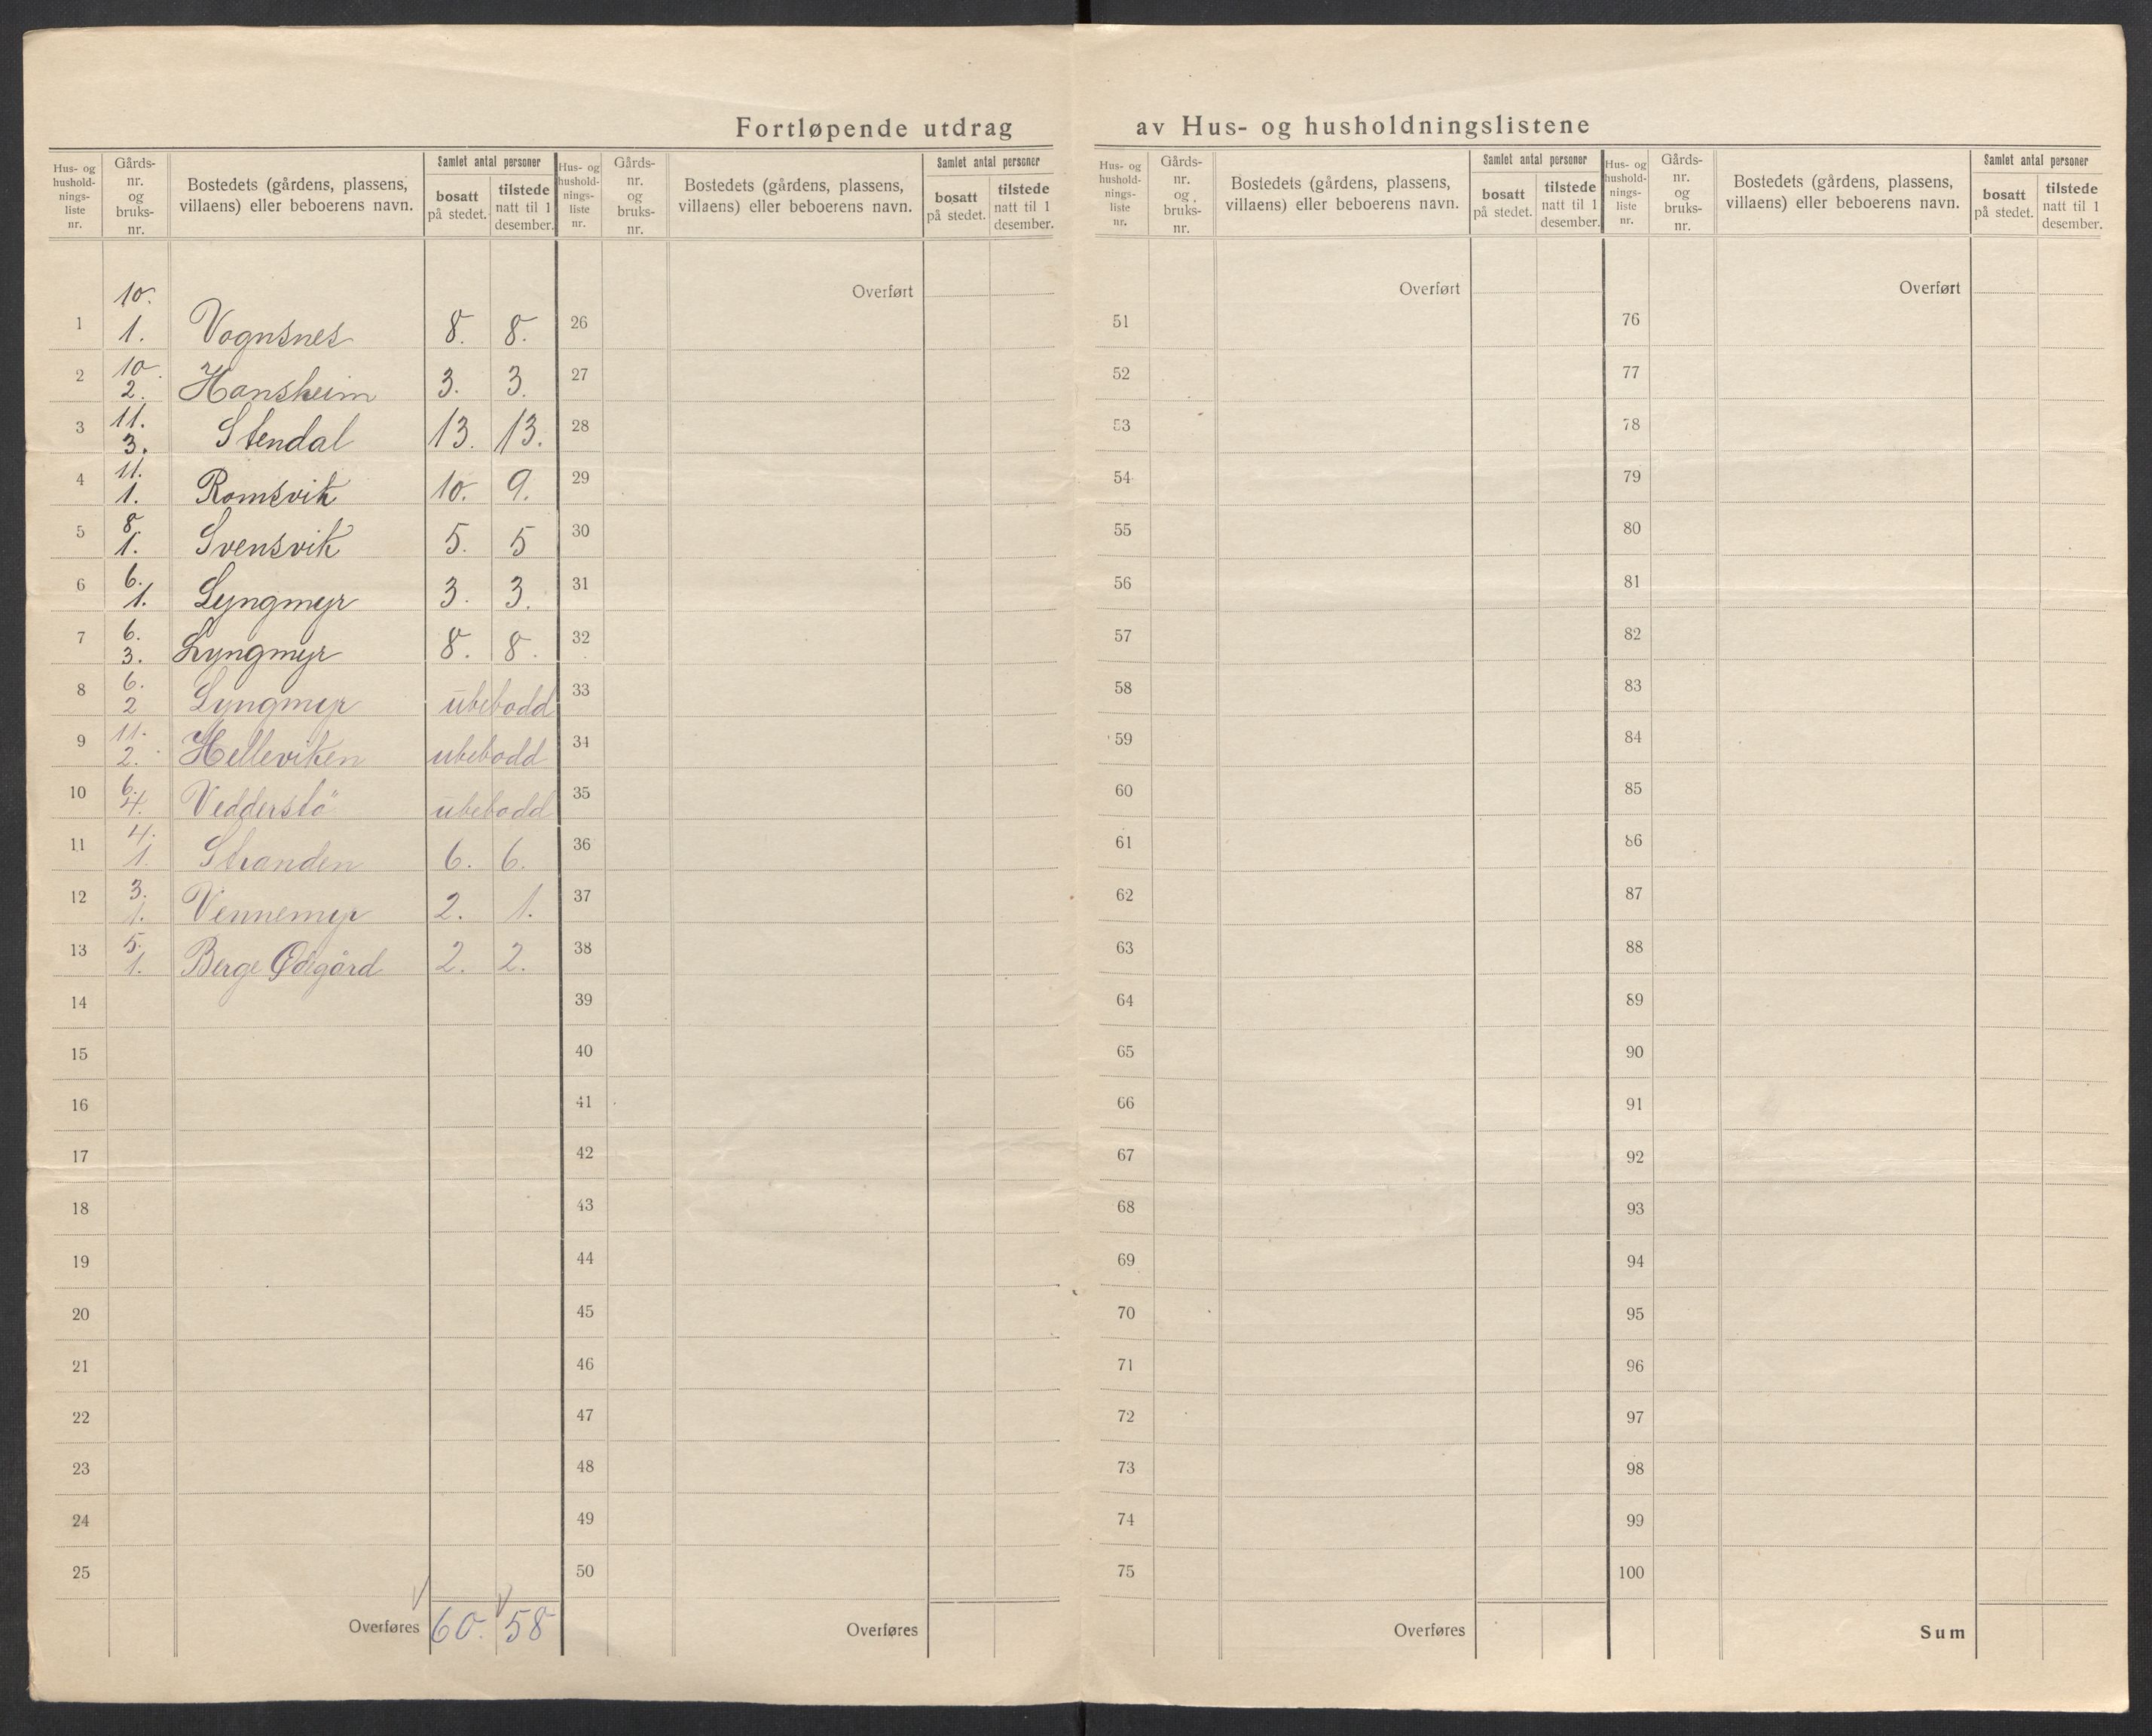 Fortløpende utdrag av Hus- og husholdningslistene
Hus- og hushold-nings-liste nr. Gårds-nr. og bruks-nr. Bostedets (gårdens, plassens, villaens) eller beboerens navn. Samlet antal personer bosatt på stedet. tilstede natt til 1 desember.
Hus- og hushold-nings-liste nr. Gårds-nr. og bruks-nr. Bostedets (gårdens, plassens, villaens) eller beboerens navn. Samlet antal personer bosatt på stedet. tilstede natt til 1 desember.
Hus- og hushold-nings-liste nr. Gårds-nr. og bruks-nr. Bostedets (gårdens, plassens, villaens) eller beboerens navn. Samlet antal personer bosatt på stedet. tilstede natt til 1 desember.
Hus- og hushold-nings-liste nr. Gårds-nr. og bruks-nr. Bostedets (gårdens, plassens, villaens) eller beboerens navn. Samlet antal personer bosatt på stedet. tilstede natt til 1 desember.
1 10. 1. Vognsnes 8. 8.
2 10. 2. Hansheim 3. 3.
3 11. 3. Stendal 13. 13.
4 11. 1. Romsvik 10. 9.
5 8. 1. Svensvik 5. 5
6 6. 1. Lyngmyr 3. 3.
7 6. 3. Lyngmyr 8. 8.
8 6. 2 Lyngmyr ubebodd
9 11. 2. Helleviken ubebodd
10 6. 4. Vedderstö ubebodd
11 4. 1. Stranden 6. 6.
12 3. 1. Vennemyr 2. 1.
13 5. 1. Berge Ødegård 2. 2.
14
15
16
17
18
19
20
21
22
23
24
25
Overføres 60. 58
Overført
26
27
28
29
30
31
32
33
34
35
36
37
38
39
40
41
42
43
44
45
46
47
48
49
50
Overføres
Overført
51
52
53
54
55
56
57
58
59
60
61
62
63
64
65
66
67
68
69
70
71
72
73
74
75
Overføres
Overført
76
77
78
79
80
81
82
83
84
85
86
87
88
89
90
91
92
93
94
95
96
97
98
99
100
Sum